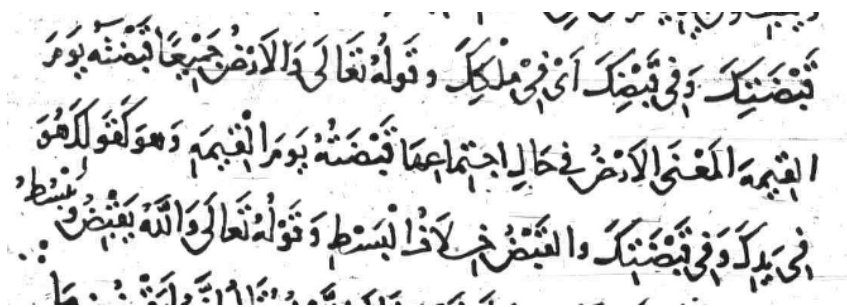 قَبْضَتِكَ وَفِي قَبْضِكَ اَيْ فِيْ مِلْكِكَ وقَولُهُ تَعَالَى وَالاَرْضُ جَمِيْعًا قَبْضَتُه يَومَ
القِيمَةِ المَعْنَى الاَرْضُ في حَالِ اجتِمَاعِهَا قَبْضَتُهُ يَومَ الْقِيمَةِ وَهوَ كَقَولِكَ هُوَ
فِي يَدِكَ وَفِي قَبْضَتِكَ والقَبْضُ خِلَافُ الْبَسْطِ وَقَوْلُهُ تَعَالَى وَاللَّهُ يَقْبِضُ وَيَبْسُطُ